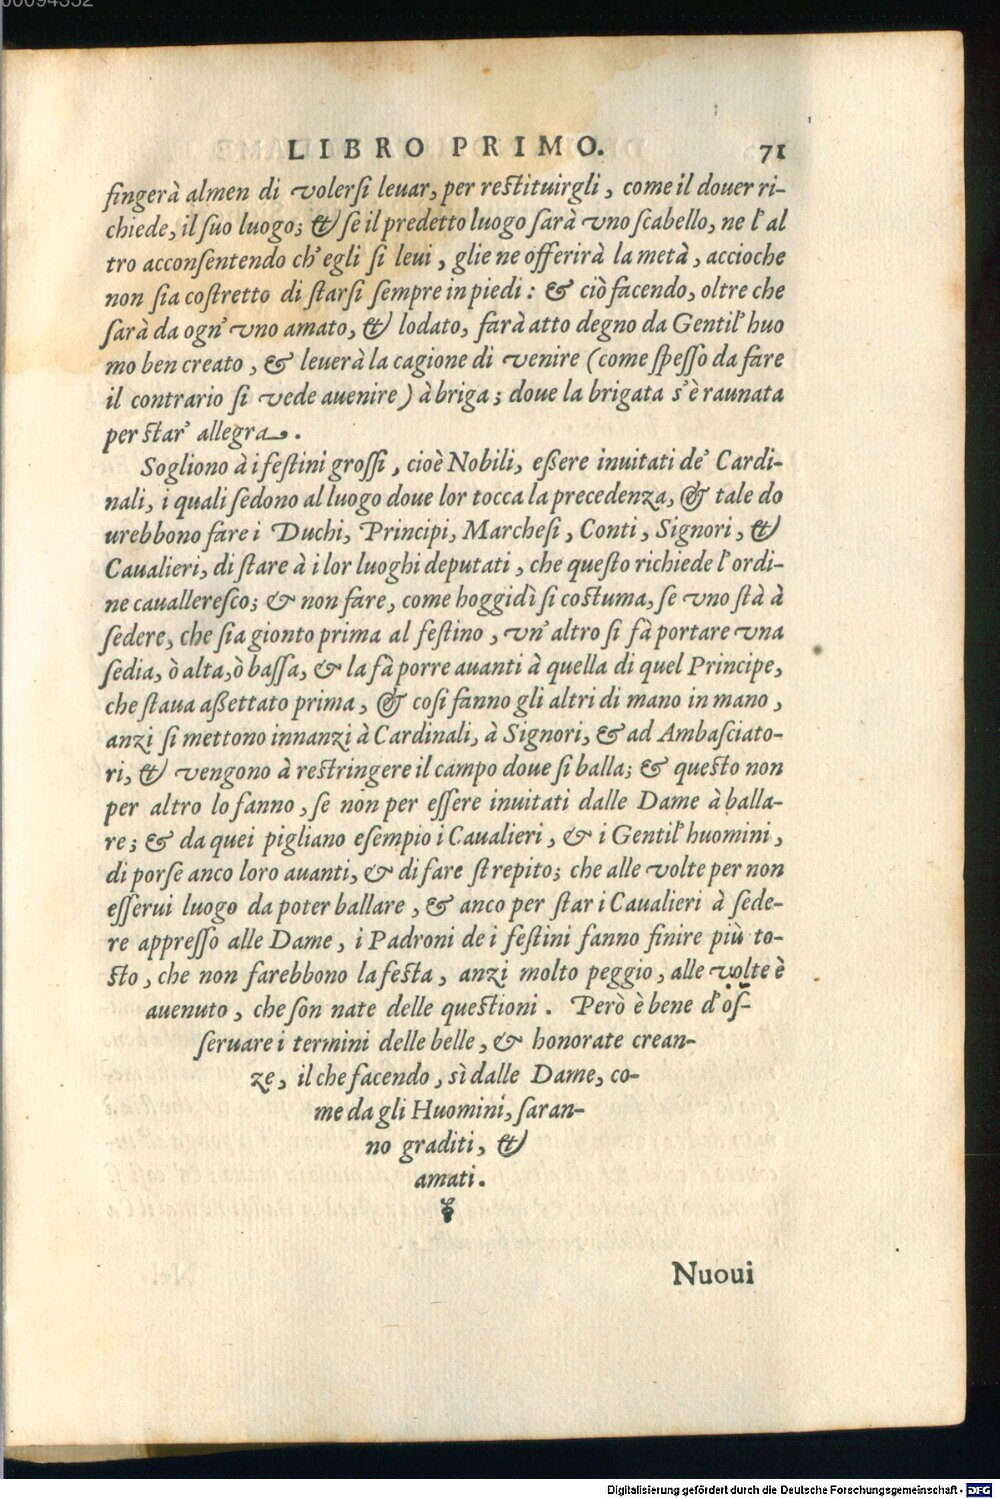 00094352
LIBRO PRIMO. 71
fingerà almen di volerſi leuar, per reſtituirgli, come il douer ri-
chiede, il ſuo luogo; & ſe il predetto luogo ſarà vno ſcabello, ne l'al
tro acconſentendo ch'egli ſi leui, glie ne offerirà la metà, accioche
non ſia coſtretto di ſtarſi ſempre in piedi: & ciò facendo, oltre che
ſarà da ogn'vno amato, & lodato, farà atto degno da Gentil'huo
mo ben creato, & leuerà la cagione di venire (come ſpeſſo da fare
il contrario ſi vede auenire) à briga; doue la brigata s'è raunata
per ſtar' allegra.
Sogliono à i feſtini groſſi, cioè Nobili, eßere inuitati de' Cardi-
nali, i quali ſedono al luogo doue lor tocca la precedenza, & tale do
urebbono fare i Duchi, Principi, Marcheſi, Conti, Signori, &
Caualieri, di ſtare à i lor luoghi deputati, che queſto richiede l'ordi-
ne caualleresco; & non fare, come hoggidì ſi coſtuma, ſe uno ſtà à
ſedere, che ſia gionto prima al feſtino, vn'altro ſi fà portare vna
ſedia, ò alta, ò baſſa, & la fà porre auanti à quella di quel Principe,
che ſtaua aßettato prima, & coſi fanno gli altri di mano in mano,
anzi ſi mettono innanzi à Cardinali, à Signori, & ad Ambaſciato-
ri, & vengono à reſtringere il campo doue ſi balla; & queſto non
per altro lo fanno, ſe non per eſſere inuitati dalle Dame à balla-
re; & da quei pigliano eſempio i Caualieri, & i Gentil'huomini,
di porſe anco loro auanti, & di fare ſtrepito; che alle volte per non
eſſerui luogo da poter ballare, & anco per ſtar i Caualieri à ſede-
re appreſſo alle Dame, i Padroni de i feſtini fanno finire più to-
ſto, che non farebbono la feſta, anzi molto peggio, alle volte è
auenuto, che ſon nate delle queſtioni. Però è bene d'oſ-
ſeruare i termini delle belle, & honorate crean-
ze, il che facendo, sì dalle Dame, co-
me da gli Huomini, ſaran-
no graditi, &
amati.
Nuoui
Digitalisierung gefördert durch die Deutsche Forschungsgemeinschaft - DFG